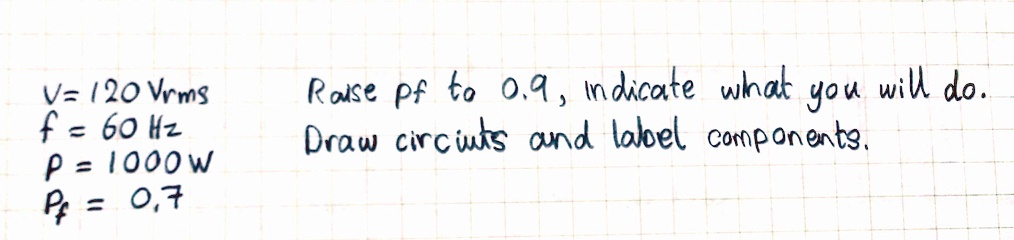 V = 120 Vrms
f = 60 Hz
P = 1000 W
Pf = 0,7
Raise pf to 0.9, indicate what you will do.
Draw circiuts and label components.